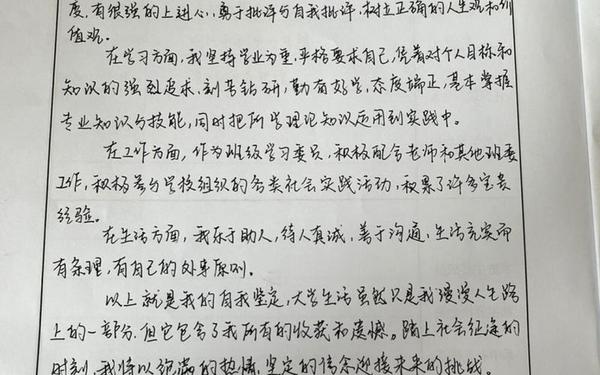 度，有很强的上进心，勇于批评与自我批评，树立正确的人生观和价
值观。
在学习方面，我坚持学业为重，严格要求自己，凭着对个人目标和
知识的强烈追求，刻苦钻研，勤奋好学，态度端正，基本掌握
专业知识与技能，同时把所学理论知识运用到实践中。
在工作方面，作为班级学习委员，积极配合老师和其他班委
工作，积极参与学校组织的各类社会实践活动，积累了许多宝贵
经验。
在生活方面，我乐于助人，待人真诚，善于沟通，生活充实而
有条理，有自己的处事原则。
以上就是我的自我鉴定，大学生活虽然只是我漫漫人生路
上的一部分，但它包含了我所有的收获和遗憾。踏上社会征途的
时刻，我将以饱满的热情，坚定的信念迎接未来的挑战。